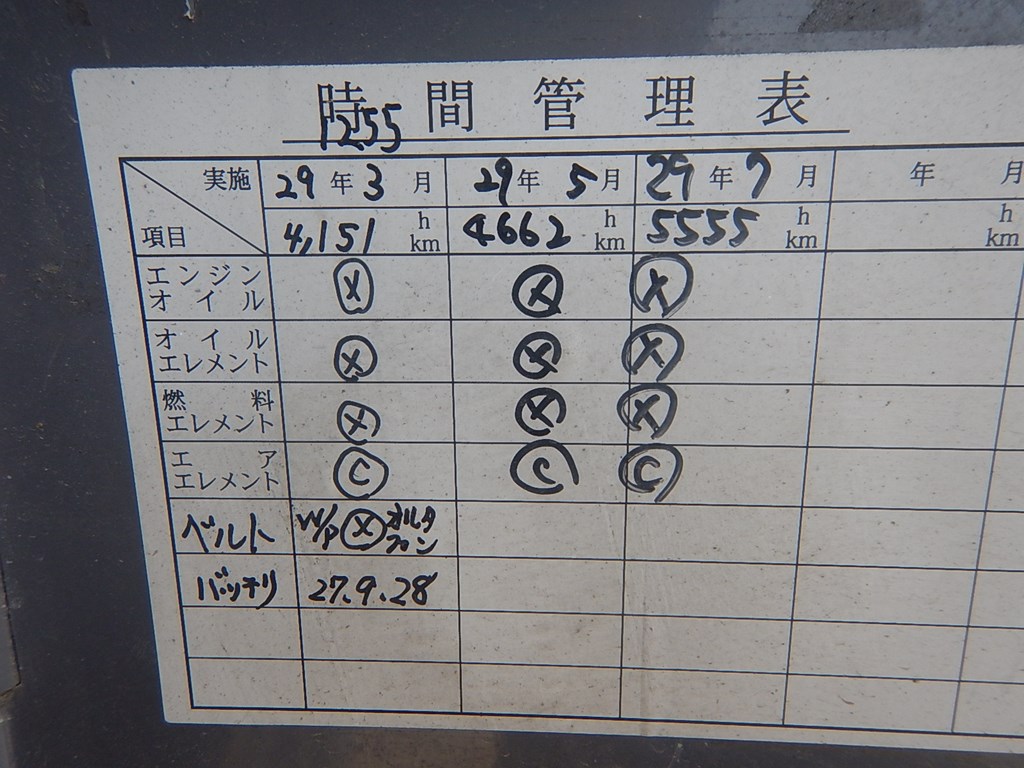 時間管理表
1255
実施 29年3月 29年5月 29年7月 年 月
項目 4,151 h km 4662 h km 5555 h km h km
エンジン
オイル Ⓧ Ⓧ Ⓧ
オイル
エレメント Ⓧ Ⓧ Ⓧ
燃料
エレメント Ⓧ Ⓧ Ⓧ
エア
エレメント Ⓒ Ⓒ Ⓒ
ベルト W/P Ⓧ オルタ
ファン
バッテリ 27.9.28